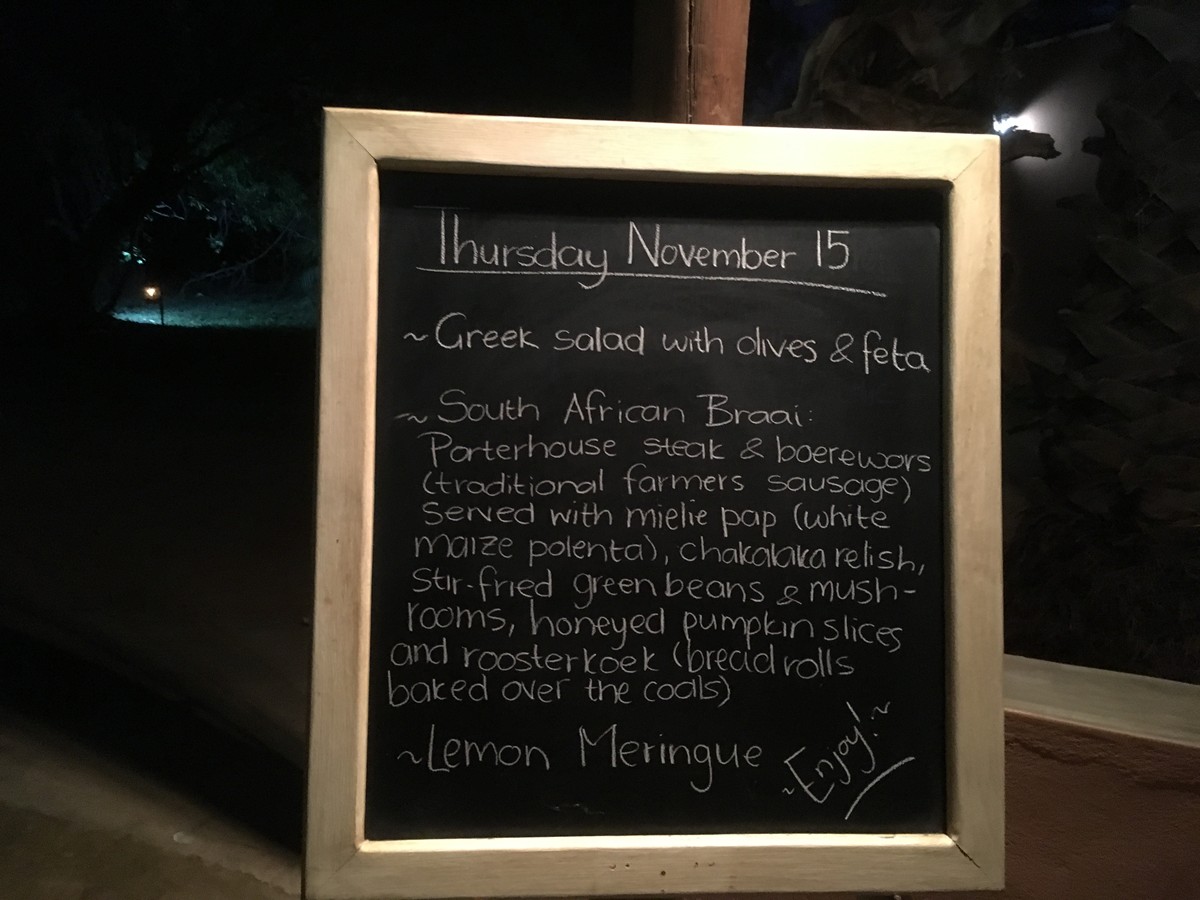 Thursday November 15
~ Greek salad with olives & feta
~ South African Braai:
Porterhouse steak & boerewors
(traditional farmers sausage)
Served with mielie pap (white
maize polenta), chakalaka relish,
stir-fried green beans & mush-
rooms, honeyed pumpkin slices
and roosterkoek (bread rolls
baked over the coals)
~ Lemon Meringue
~ Enjoy! ~